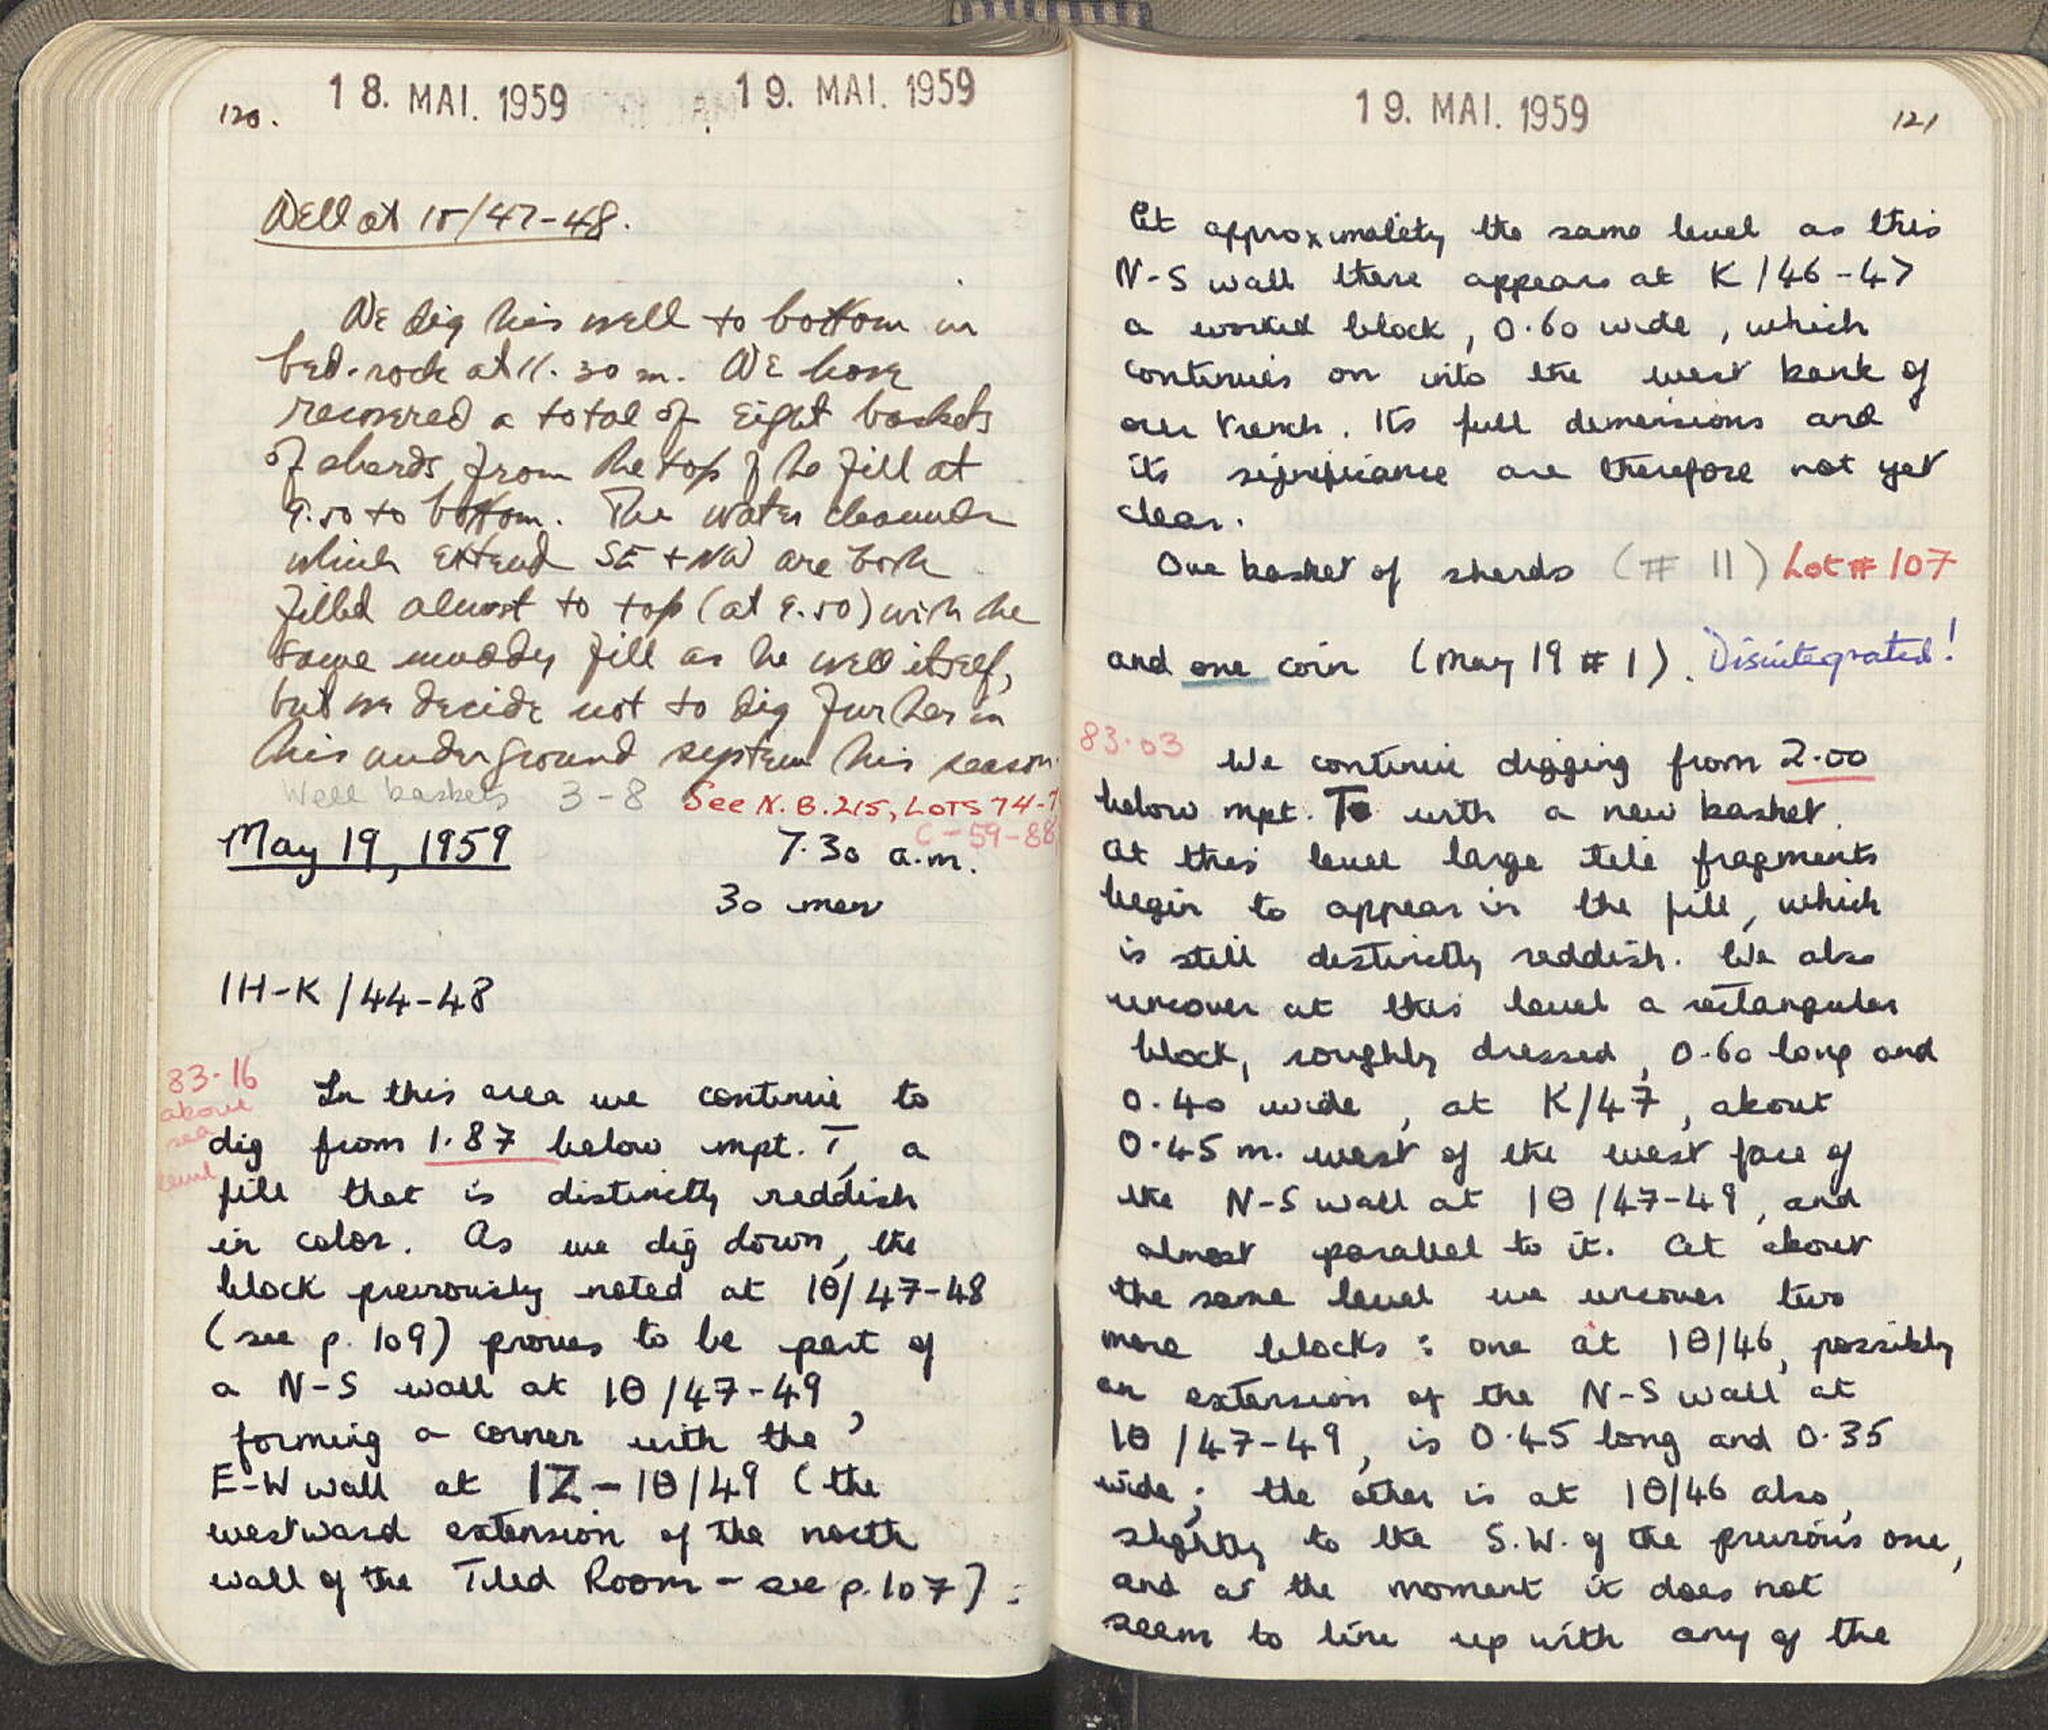 120.
18. MAI. 1959
19. MAI. 1959
Well at 15/47-48.
We dig this well to bottom in
bed-rock at 11.30 m. We have
recovered a total of eight baskets
of sherds from the top of the fill at
9.50 to bottom. The water channels
which extend SE + NW are both
filled almost to top (at 9.50) with the
same muddy fill as the well itself,
but we decide not to dig further in
this underground system this season.
Well baskets 3-8 See N.B. 215, LOTS 74-7
C-59-88
May 19, 1959 7.30 a.m.
30 men
IH-K/44-48
83.16
above
sea
level
In this area we continue to
dig from 1.87 below mpt. T, a
fill that is distinctly reddish
in color. As we dig down, the
block previously noted at IΘ/47-48
(see p. 109) proves to be part of
a N-S wall at IΘ/47-49,
forming a corner with the
E-W wall at IZ-IΘ/49 (the
westward extension of the north
wall of the Tiled Room - see p. 107).
19. MAI. 1959
121
At approximately the same level as this
N-S wall there appears at K/46-47
a worked block, 0.60 wide, which
continues on into the west bank of
our trench. Its full dimensions and
its significance are therefore not yet
clear.
One basket of sherds (# 11) Lot # 107
and one coin (May 19 # 1). Disintegrated!
83.03
We continue digging from 2.00
below mpt. T with a new basket.
At this level large tile fragments
begin to appear in the fill, which
is still distinctly reddish. We also
uncover at this level a rectangular
block, roughly dressed, 0.60 long and
0.40 wide, at K/47, about
0.45 m. west of the west face of
the N-S wall at IΘ/47-49, and
almost parallel to it. At about
the same level we uncover two
more blocks: one at IΘ/46, possibly
an extension of the N-S wall at
IΘ/47-49, is 0.45 long and 0.35
wide; the other is at IΘ/46 also,
slightly to the S.W. of the previous one,
and at the moment it does not
seem to line up with any of the